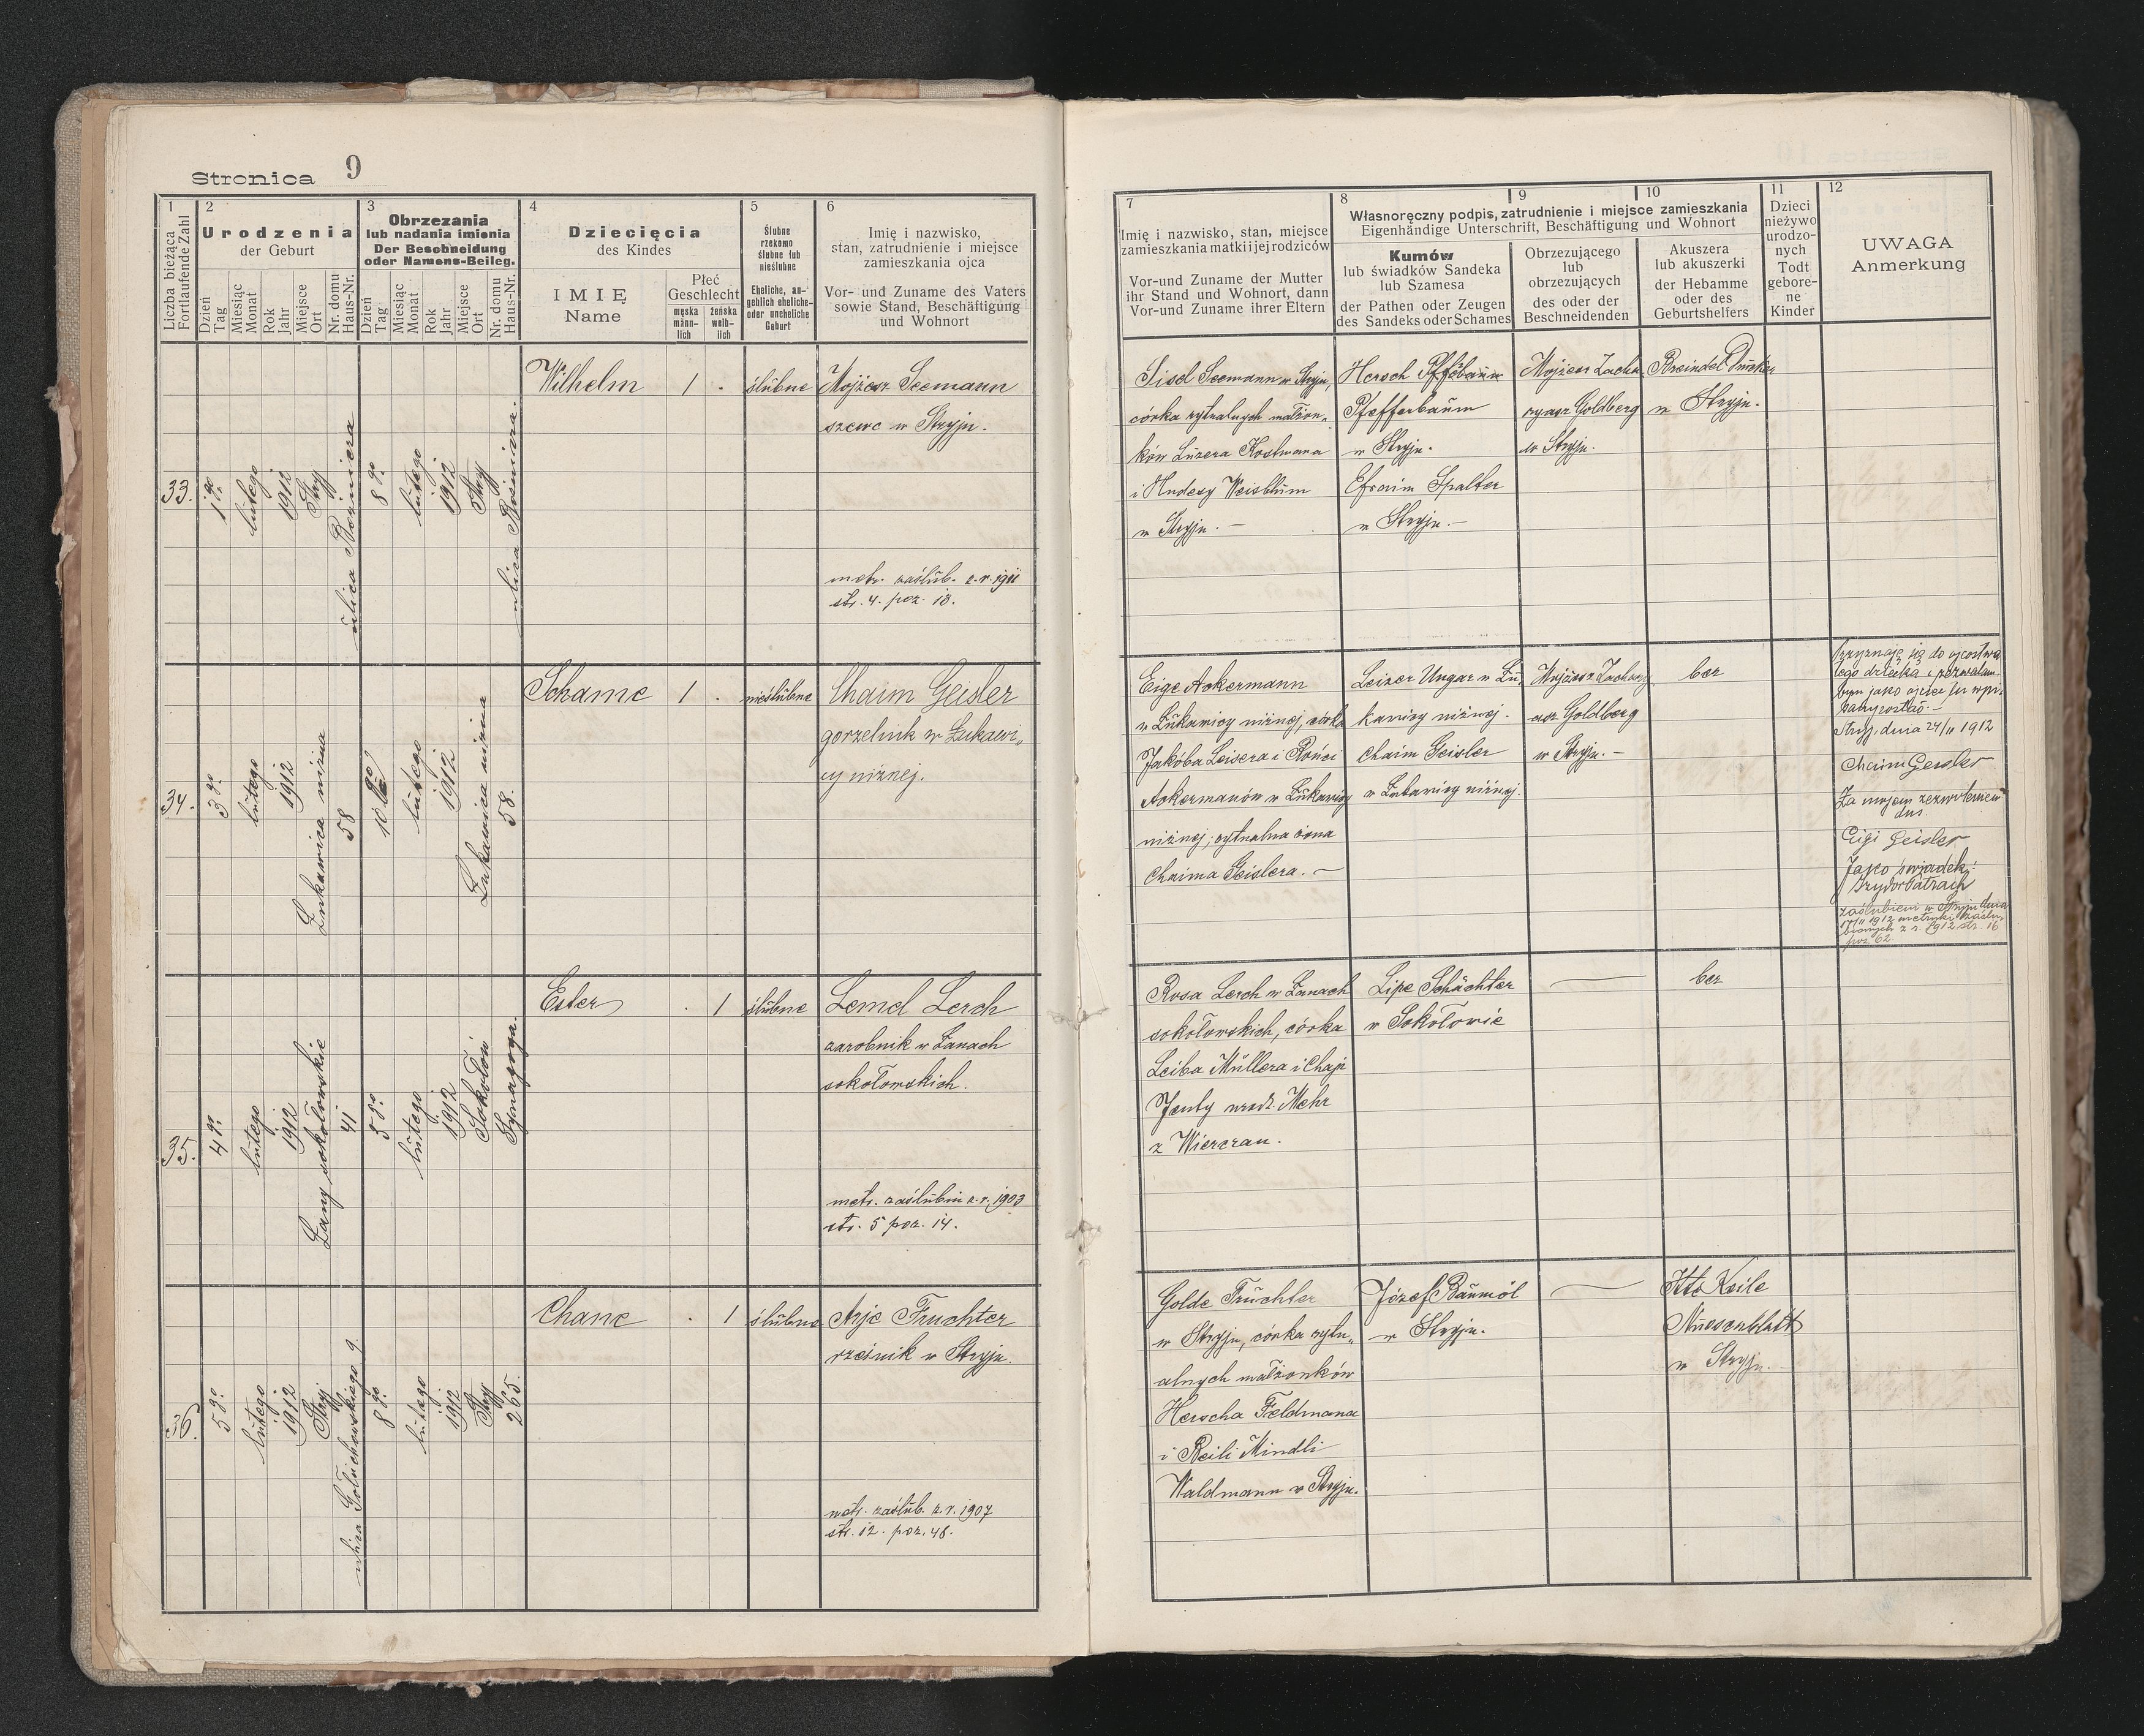 Stronica 9
1
Liczba bieżąca
Fortlaufende Zahl
2
Urodzenia
der Geburt
Dzień
Tag
Miesiąc
Monat
Rok
Jahr
Miejsce
Ort
Nr. domu
Haus-Nr.
3
Obrzezania
lub nadania imienia
Der Beschneidung
oder Namens-Beileg.
Dzień
Tag
Miesiąc
Monat
Rok
Jahr
Miejsce
Ort
Nr. domu
Haus-Nr.
4
Dziecięcia
des Kindes
IMIĘ
Name
Płeć
Geschlecht
męska
männ-
lich
żeńska
weib-
lich
5
Ślubne
rzekomo
ślubne lub
nieślubne
Eheliche, an-
geblich eheliche-
oder uneheliche
Geburt
6
Imię i nazwisko,
stan, zatrudnienie i miejsce
zamieszkania ojca
Vor- und Zuname des Vaters
sowie Stand, Beschäftigung
und Wohnort
33.
1go
lutego
1912
Stryj
ulica Bożnicza
8go
lutego
1912
Stryj
ulica Bożnicza.
Wilhelm
1
.
ślubne
Mojżesz Seemann
szewc w Stryju.
metr. zaślub. z r. 1911
str. 4. poz. 13.
34.
3go
lutego
1912
Łukawica niżna
58
10go
lutego
1912
Łukawica niżna
58.
Schame
1
.
nieślubne
Chaim Geisler
gorzelnik w Łukawi„
cy niżnej.
35.
4go
lutego
1912
Łany sokołowskie
41
5go
lutego
1912
Sokołów
Synagoga.
Ester
.
1
ślubne
Lemel Lerch
zarobnik w Łanach
sokołowskich.
metr. zaślubin z r. 1903
str. 5 poz. 14.
36.
5go
lutego
1912
Stryj
ulica Gołuchowskiego 9.
8go
lutego
1912
Stryj
265.
Chane
.
1
ślubne
Arje Fruchter
rzeźnik w Stryju.
metr. zaślub. z r. 1907
str. 12. poz. 48.
7
Imię i nazwisko, stan, miejsce
zamieszkania matki i jej rodziców
Vor-und Zuname der Mutter
ihr Stand und Wohnort, dann
Vor-und Zuname ihrer Eltern
8
9
10
Własnoręczny podpis, zatrudnienie i miejsce zamieszkania
Eigenhändige Unterschrift, Beschäftigung und Wohnort
Kumów
lub świadków Sandeka
lub Szamesa
der Pathen oder Zeugen
des Sandeks oder Schames
Obrzezującego
lub
obrzezujących
des oder der
Beschneidenden
Akuszera
lub akuszerki
der Hebamme
oder des
Geburtshelfers
11
Dzieci
nieżywo
urodzo-
nych
Todt
gebore-
ne
Kinder
12
UWAGA
Anmerkung
Sisel Seemann w Stryju,
córka rytualnych małżon„
ków Luzera Kostmana
i Hudesy Weisblum
w Stryju. —
Hersch
Pfefferbaum
w Stryju.
Efroim Spalter
w Stryju. —
Mojżesz Zacha
ryasz Goldberg
w Stryju.
Breindel
w Stryju.
Eige Ackermann
w Łukawicy niżnej, córka
Jakóba Leisera i
Ackermanów w Łukawicy
niżnej; rytualna żona
Chaima Geislera. —
Leizer Ungar w Łu„
kawicy niżnej.
Chaim Geisler
w Łukawicy niżnej.
Mojżesz Zachary
asz Goldberg
w Stryju. —
bez
Przyznaję się do ojcostwa
tego dziecka i pozwalam
bym jako ojciec tu wpi„
sany został. —
Stryj, dnia 24/II 1912
Chaim Geisler
Za mojem zezwoleniem
Eigi Geisler
Jako świadek:
Izydor Patrach
zaślubieni w Stryju dnia
1912 metryki zaślu„
bionych z r. 1912 str. 16
poz. 62.
Rosa Lerch w Łanach
sokołowskich, córka
Leiba Müllera i Chaji
Jenty urodz. Mehr
z Wierczan.
Lipe Schächter
w Sokołowie
—
bez
Golde Fruchter
w Stryju, córka rytu„
alnych małżonków
Herscha Feldmana
i Reili Mindli
Waldmann w Stryju.
Józef Baumöl
w Stryju.
—
Itte Keile
Nuesenblatt
w Stryju.